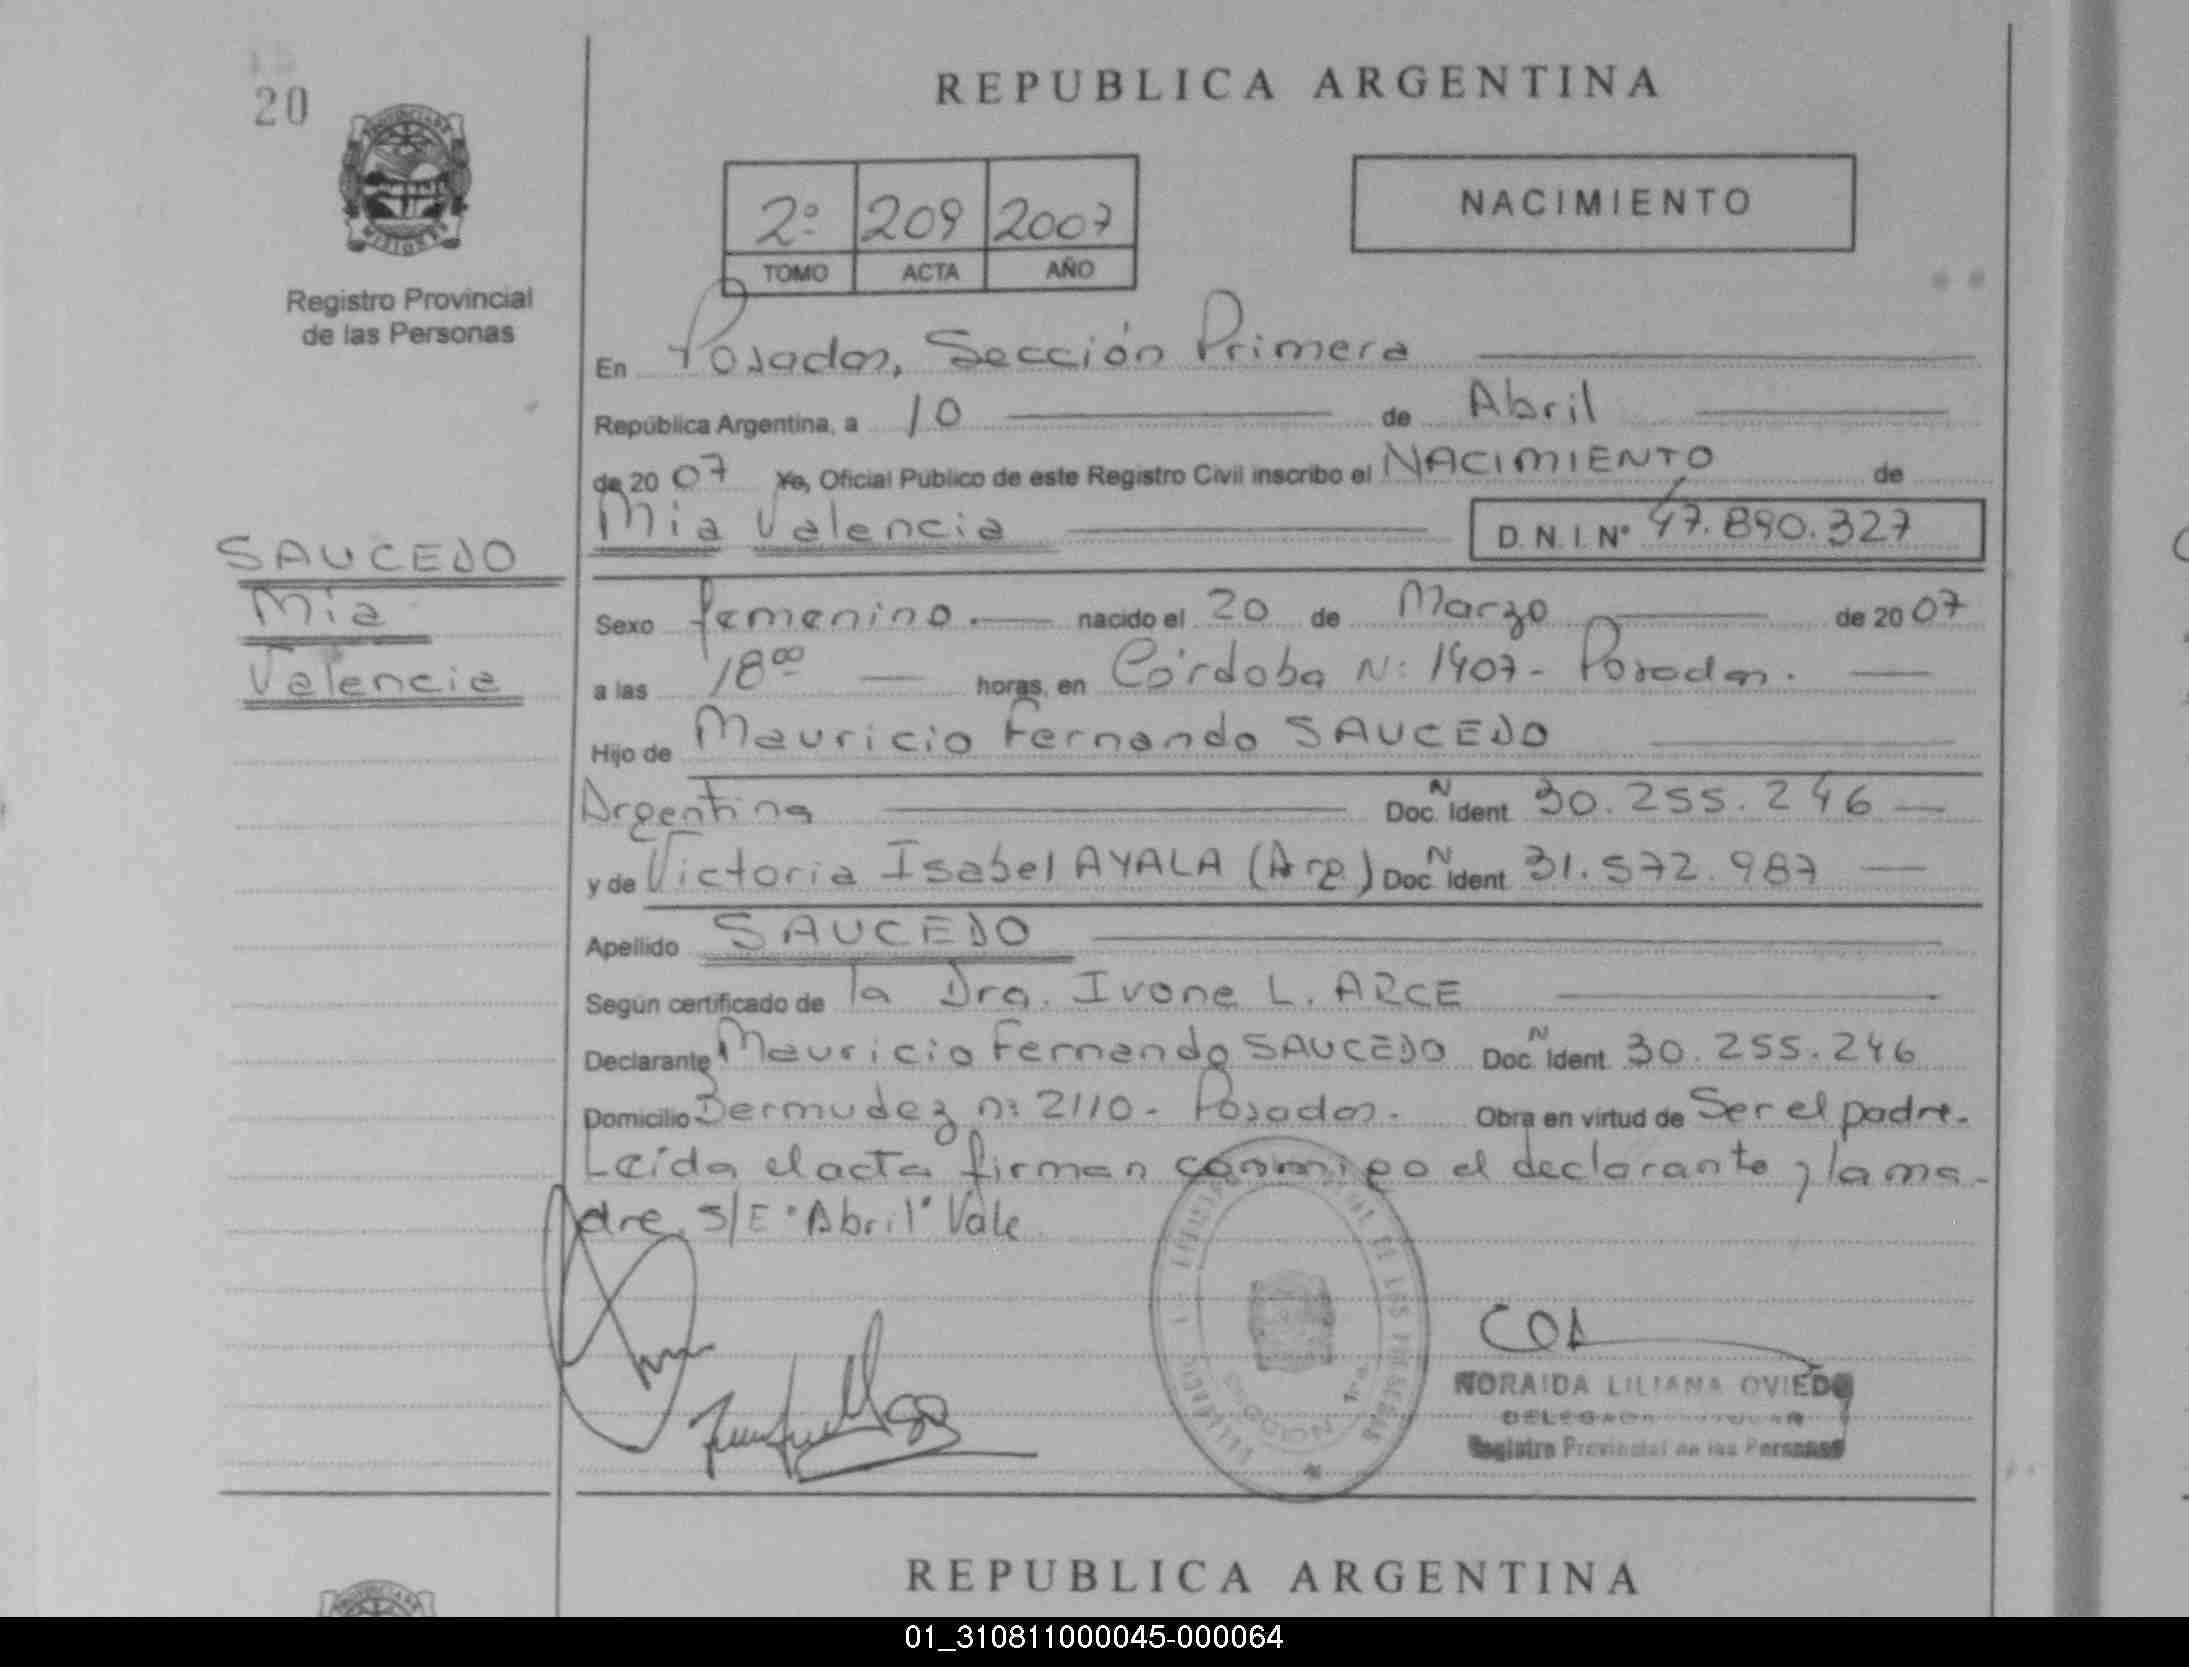 20
PROVINCIA DE
MISIONES
Registro Provincial
de las Personas
REPUBLICA ARGENTINA
2º 209 2007
TOMO ACTA AÑO
NACIMIENTO
En Posadas, Sección Primera
República Argentina, a 10 de Abril
de 20 07 Yo, Oficial Público de este Registro Civil inscribo el NACIMIENTO de
Mía Valencia D.N.I. Nº 47.890.327
SAUCEDO
Mía
Valencia
Sexo femenino. nacido el 20 de Marzo de 20 07
a las 18 00 horas, en Córdoba Nº 1407- Posadas.
Hijo de Mauricio Fernando SAUCEDO
Argentina Doc. N Ident. 30.255.246
y de Victoria Isabel AYALA (Arg.) Doc. N Ident. 31.572.987
Apellido SAUCEDO
Según certificado de la Dra. Ivone L. ARCE
Declarante Mauricio Fernando SAUCEDO Doc. N Ident. 30.255.246
Domicilio Bermudez nº 2110- Posadas. Obra en virtud de Ser el padre.
Leída el acta firman conmigo el declarante y la ma-
dre. S/E "Abril" Vale
NORAIDA LILIANA OVIEDO
DELEGADA TITULAR
Registro Provincial de las Personas
REPUBLICA ARGENTINA
01_310811000045-000064